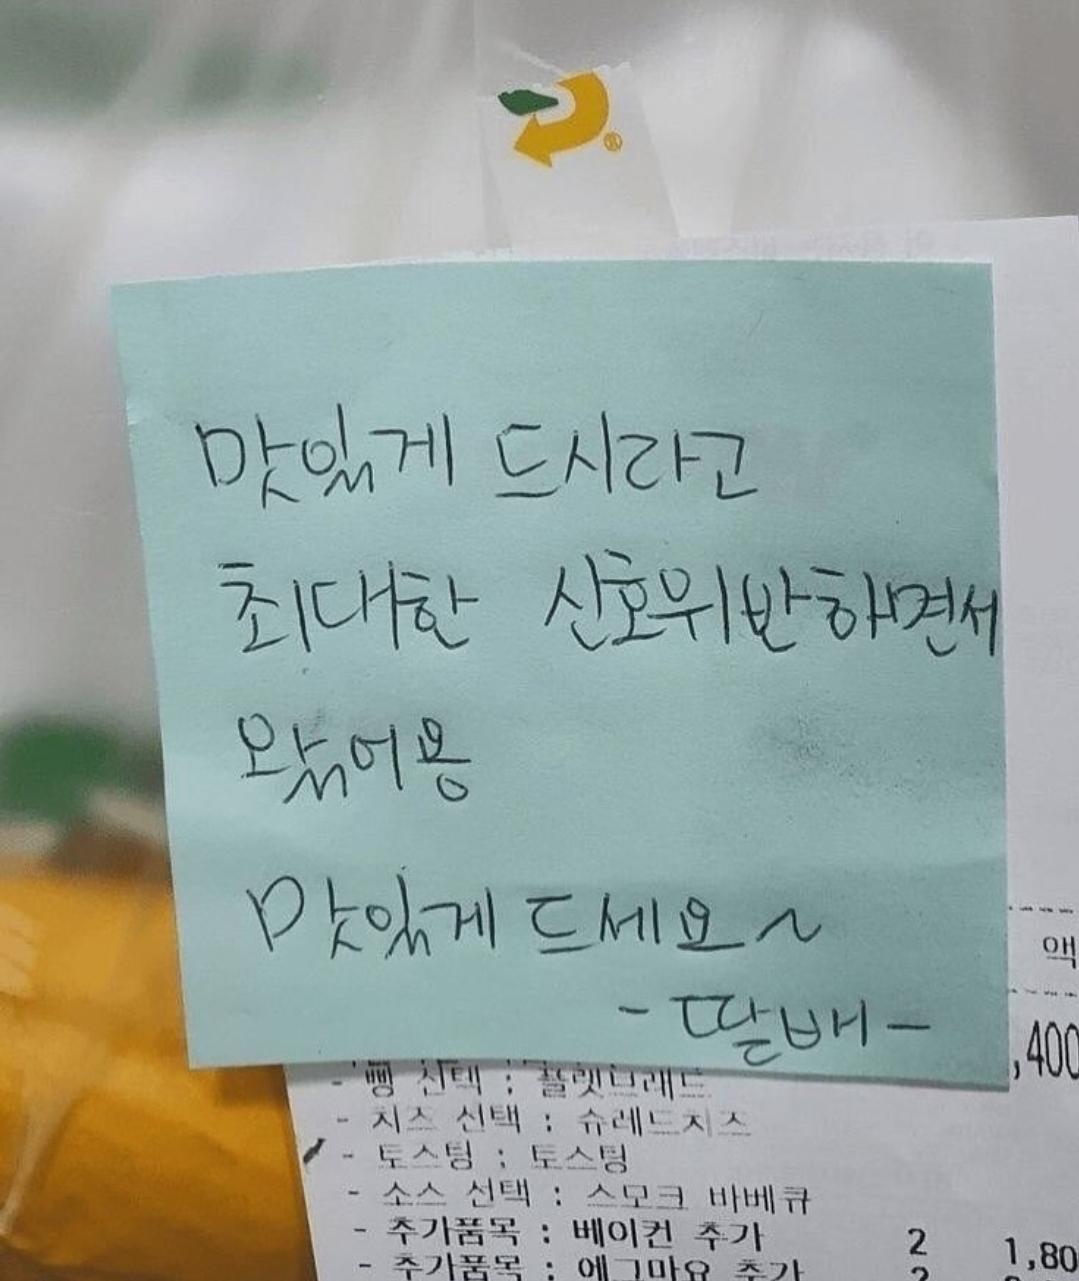 맛있게 드시라고
최대한 신호위반하면서
왔어용
맛있게 드세요~
-딸배-
액
,400
- 빵 선택 : 플랫브레드
- 치즈 선택 : 슈레드치즈
- 토스팅 : 토스팅
- 소스 선택 : 스모크 바베큐
- 추가품목 : 베이컨 추가 2 1,80
- 추가품목 : 에그마요 추가 2